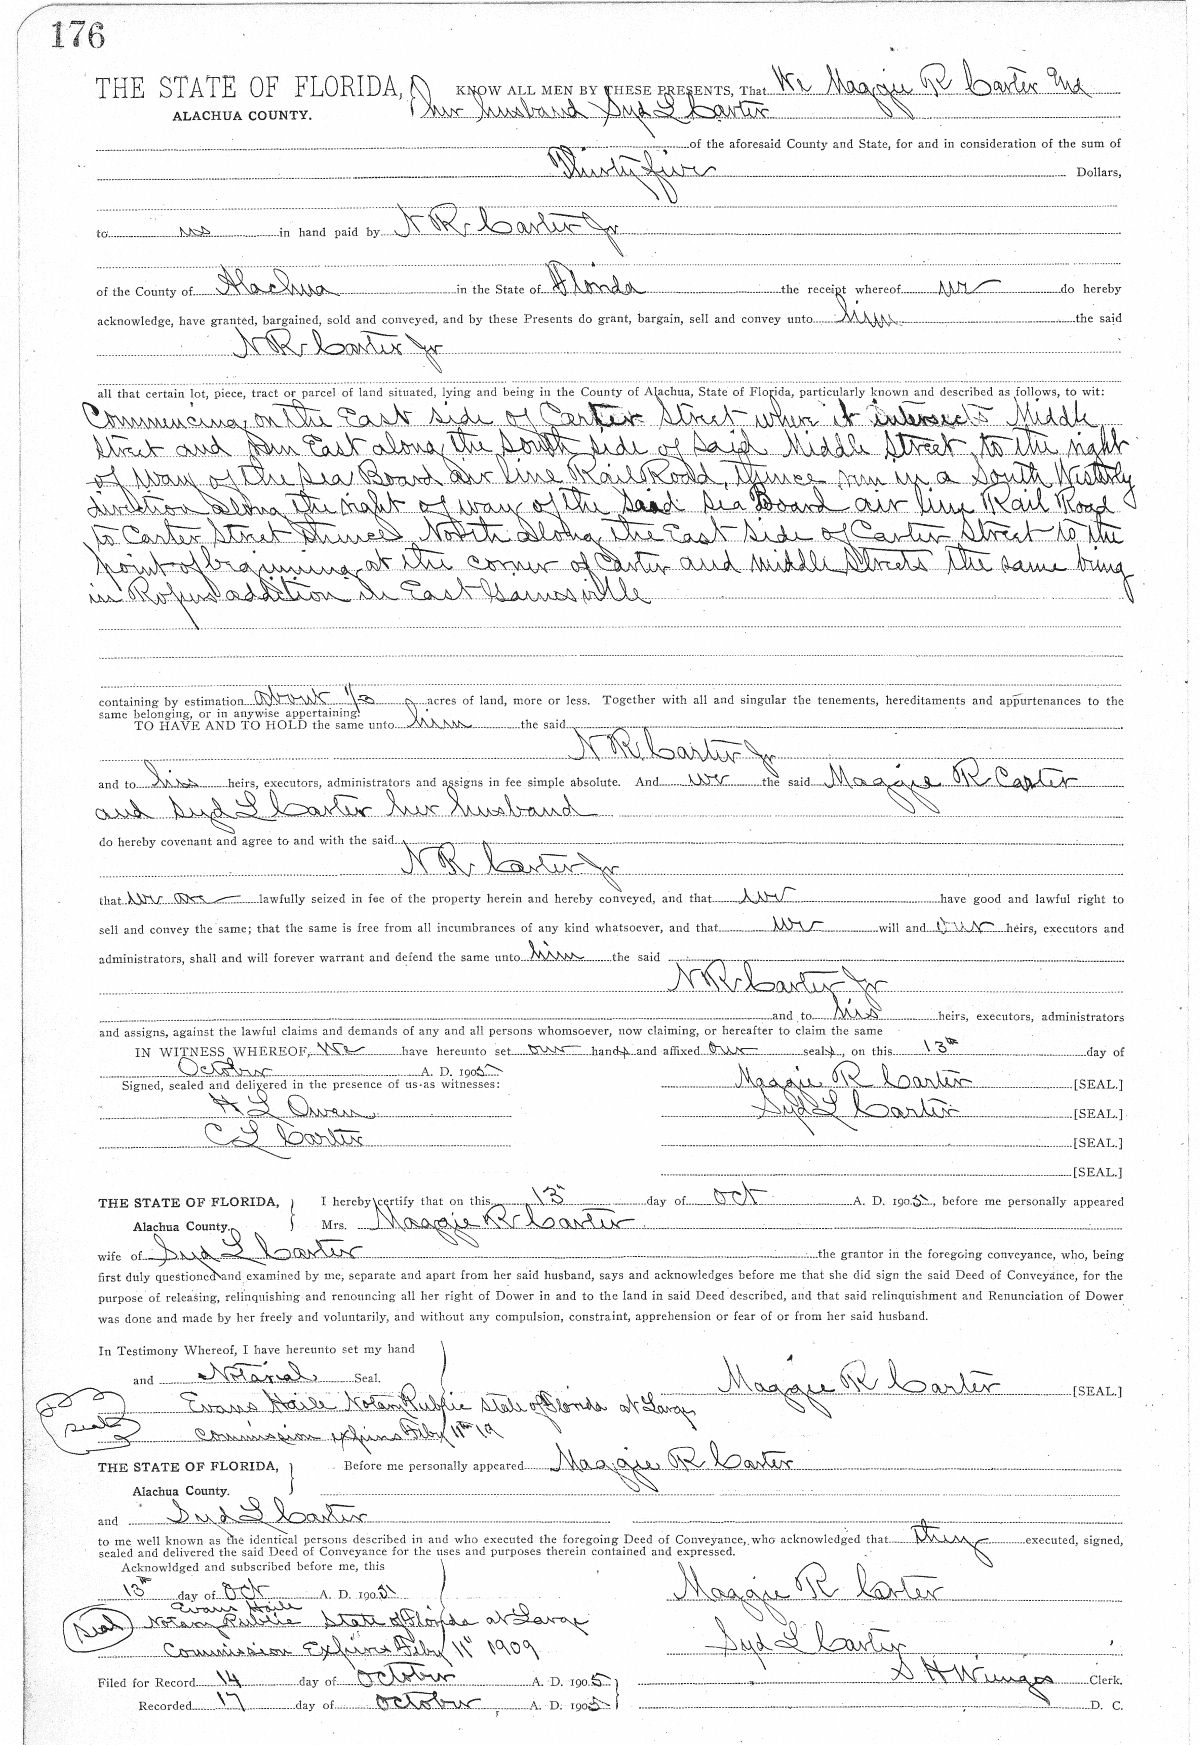 176
THE STATE OF FLORIDA, KNOW ALL MEN BY THESE PRESENTS, That We Maggie R Carter and
ALACHUA COUNTY. her husband Syd L Carter
of the aforesaid County and State, for and in consideration of the sum of
Thirty five Dollars,
to us in hand paid by N R Carter Jr
of the County of Alachua in the State of Florida the receipt whereof we do hereby
acknowledge, have granted, bargained, sold and conveyed, and by these Presents do grant, bargain, sell and convey unto him the said
N R Carter Jr
all that certain lot, piece, tract or parcel of land situated, lying and being in the County of Alachua, State of Florida, particularly known and described as follows, to wit:
Commencing on the East side of Carter Street where it intersects Middle
Street and run East along the South side of said Middle Street to the right
of way of the Sea Board air line Rail Road, thence run in a South Westerly
direction along the right of way of the said Sea Board air line Rail Road
to Carter Street thence North along the East side of Carter Street to the
point of beginning at the corner of Carter and Middle Streets the same being
in Ropers addition in East Gainesville
containing by estimation about 1/2 acres of land, more or less. Together with all and singular the tenements, hereditaments and appurtenances to the
same belonging, or in anywise appertaining:
TO HAVE AND TO HOLD the same unto him the said
N R Carter Jr
and to his heirs, executors, administrators and assigns in fee simple absolute. And we the said Maggie R Carter
and Syd L Carter her husband
do hereby covenant and agree to and with the said
N R Carter Jr
that we are lawfully seized in fee of the property herein and hereby conveyed, and that we have good and lawful right to
sell and convey the same; that the same is free from all incumbrances of any kind whatsoever, and that we will and our heirs, executors and
administrators, shall and will forever warrant and defend the same unto him the said
N R Carter Jr
and to his heirs, executors, administrators
and assigns, against the lawful claims and demands of any and all persons whomsoever, now claiming, or hereafter to claim the same
IN WITNESS WHEREOF, We have hereunto set our hands and affixed our seals, on this 13th day of
October A. D. 1905
Signed, sealed and delivered in the presence of us as witnesses: Maggie R Carter [SEAL.]
H L Owen Syd L Carter [SEAL.]
C L Carter [SEAL.]
[SEAL.]
THE STATE OF FLORIDA, I hereby certify that on this 13 day of Oct A. D. 1905, before me personally appeared
Alachua County. Mrs. Maggie R Carter
wife of Syd L Carter the grantor in the foregoing conveyance, who, being
first duly questioned and examined by me, separate and apart from her said husband, says and acknowledges before me that she did sign the said Deed of Conveyance, for the
purpose of releasing, relinquishing and renouncing all her right of Dower in and to the land in said Deed described, and that said relinquishment and Renunciation of Dower
was done and made by her freely and voluntarily, and without any compulsion, constraint, apprehension or fear of or from her said husband.
In Testimony Whereof, I have hereunto set my hand
and Notarial Seal. Maggie R Carter [SEAL.]
Evans Haile Notary Public State of Florida at Large
Seal Commission expires Feby 11th 19
THE STATE OF FLORIDA, Before me personally appeared Maggie R Carter
Alachua County.
and Syd L Carter
to me well known as the identical persons described in and who executed the foregoing Deed of Conveyance, who acknowledged that they executed, signed,
sealed and delivered the said Deed of Conveyance for the uses and purposes therein contained and expressed.
Acknowldged and subscribed before me, this
13th day of Oct A. D. 1905 Maggie R Carter
Evans Haile
Seal Notary Public State of Florida at Large
Commission Expires Feby 11" 1909 Syd L Carter
Filed for Record 14 day of October A. D. 1905 S H Wienges Clerk.
Recorded 17 day of October A. D. 1905 D. C.